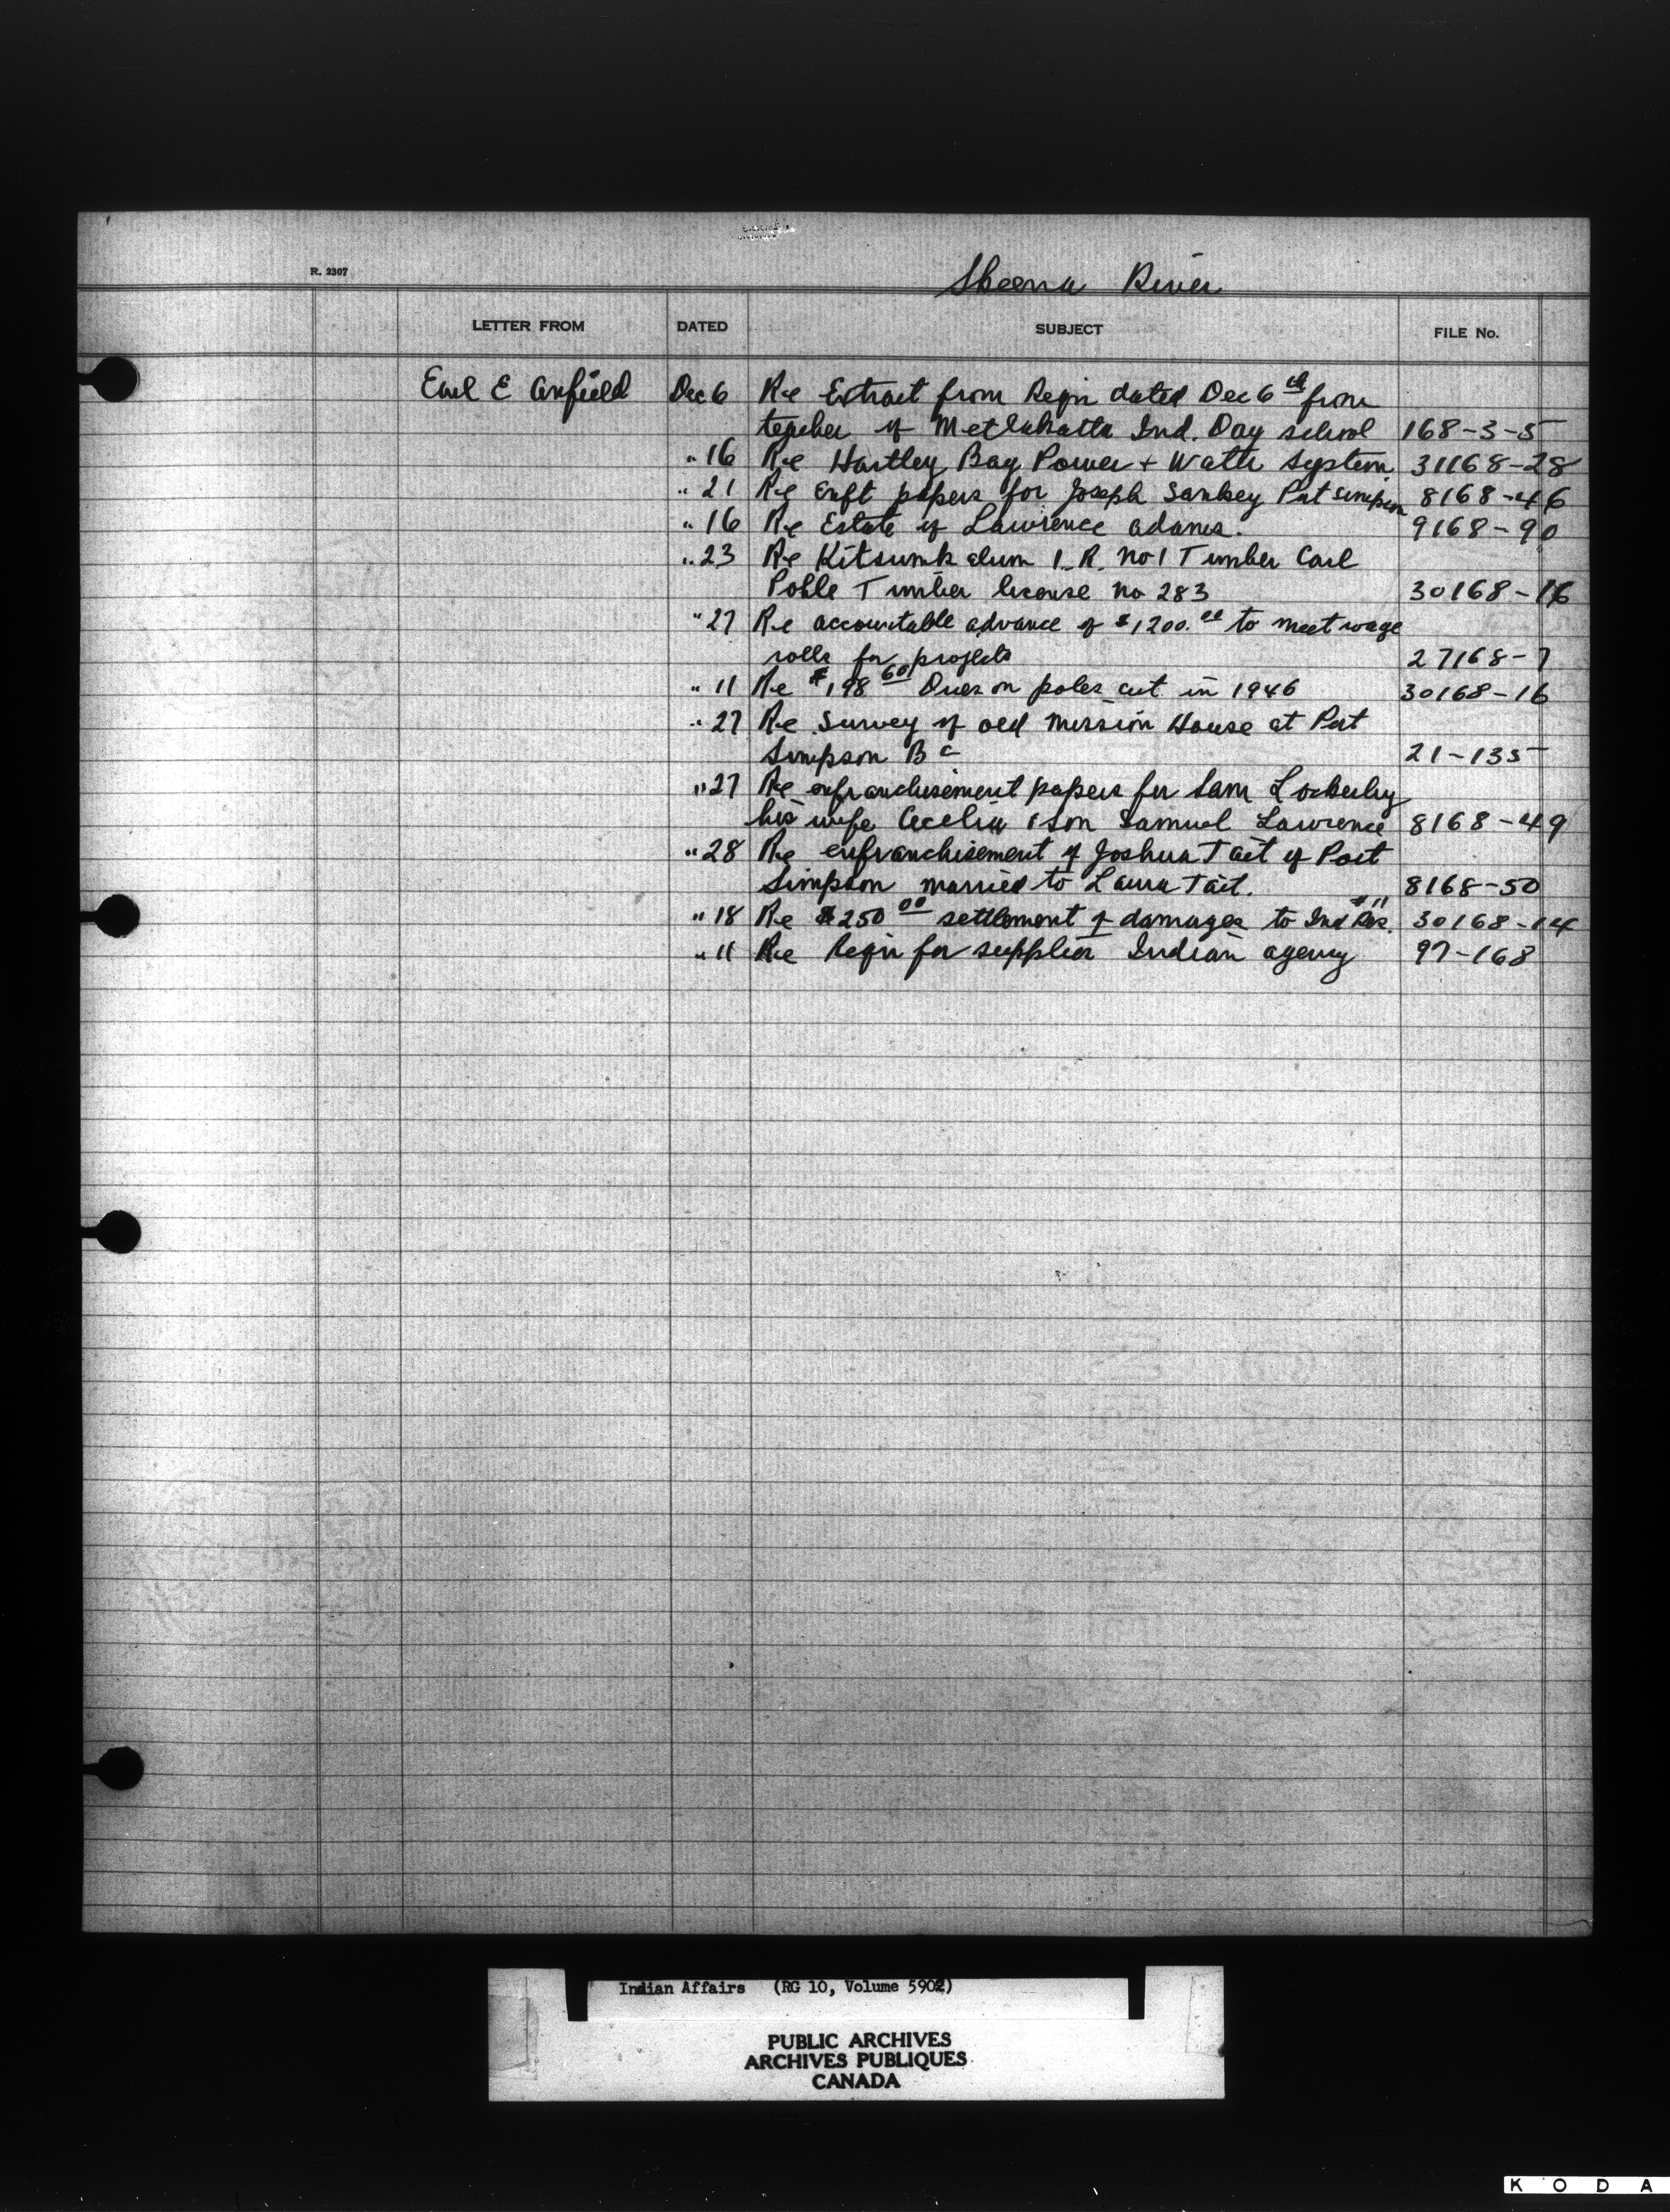 R. 2307
Skeena River
LETTER FROM DATED SUBJECT FILE No.
Earl E Anfield Dec 6 Re Extract from Reqn dated Dec 6th from
teacher of Metlakatla Ind. Day school 168-3-5
" 16 Re Hartley Bay Power + Water System 31168-28
" 21 Re Enft papers for Joseph Sankey Port Simpson 8168-46
" 16 Re Estate of Lawrence Adams. 9168-90
" 23 Re Kitsumkalum I.R. No 1 Timber Carl
Pohle Timber license No 283 30168-16
" 27 Re accountable advance of $1200.00 to meet wage
rolls for projects 27168-7
" 11 Re $198 60 Dues on poles cut in 1946 30168-16
" 27 Re Survey of old Mission House at Port
Simpson B C 21-135
" 27 Re enfranchisement papers for Sam Lockerby
his wife Cecelia & son Samuel Lawrence 8168-49
" 28 Re enfranchisement of Joshua Tait of Port
Simpson married to Laura Tait. 8168-50
" 18 Re $250 00 settlement of damages to Ind Res. #11 30168-14
" 11 Re Reqn for supplies Indian agency 97-168
Indian Affairs (RG 10, Volume 5902)
PUBLIC ARCHIVES
ARCHIVES PUBLIQUES
CANADA
K O D A